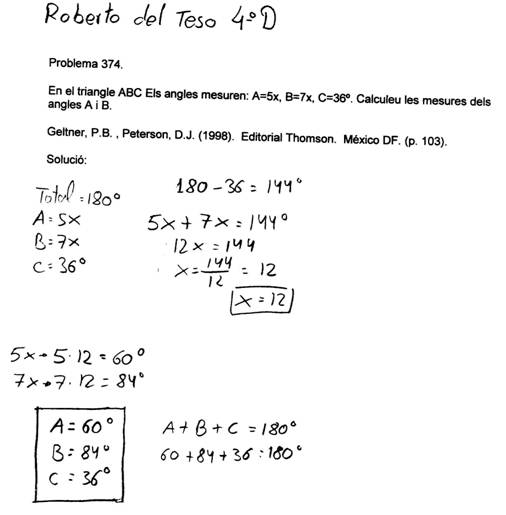 Roberto del Teso 4ºD
Problema 374.
En el triangle ABC Els angles mesuren: A=5x, B=7x, C=36º. Calculeu les mesures dels
angles A i B.
Geltner, P.B. , Peterson, D.J. (1998). Editorial Thomson. México DF. (p. 103).
Solució:
Total = 180º
A = 5x
B = 7x
C = 36º
180 - 36 = 144º
5x + 7x = 144º
12x = 144
x = 144/12 = 12
x = 12
5x → 5 · 12 = 60º
7x → 7 · 12 = 84º
A = 60º
B = 84º
C = 36º
A + B + C = 180º
60 + 84 + 36 = 180º